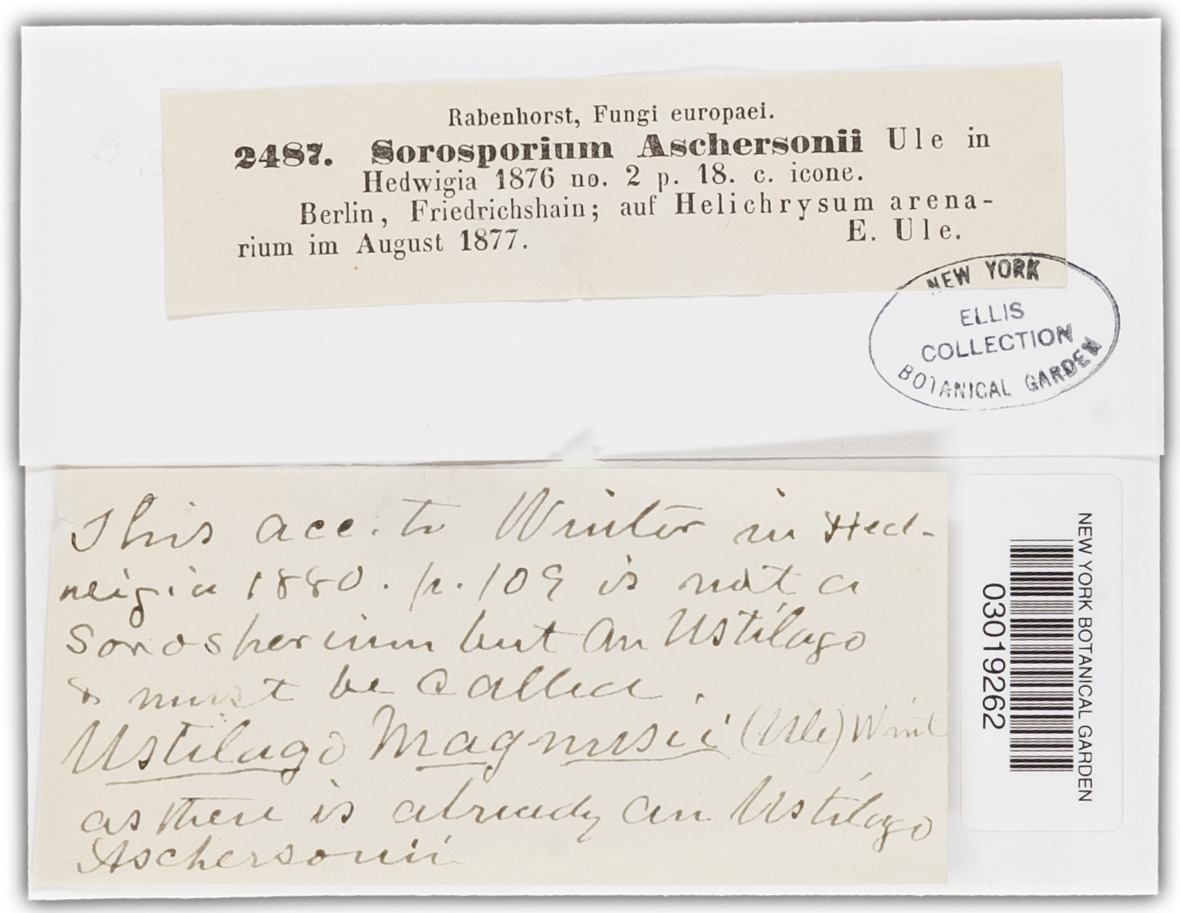 Rabenhorst, Fungi europaei.
2487. Sorosporium Aschersonii Ule in
Hedwigia 1876 no. 2 p. 18. c. icone.
Berlin, Friedrichshain; auf Helichrysum arena-
rium im August 1877. E. Ule.
NEW YORK
ELLIS
COLLECTION
BOTANICAL GARDEN
This acc. to Winter in Hed-
weigia 1880. p. 109 is not a
Sorosporium but an Ustilago
& must be called.
Ustilago Magnusii (Ule) Wint
as there is already an Ustilago
Aschersonii
NEW YORK BOTANICAL GARDEN
03019262